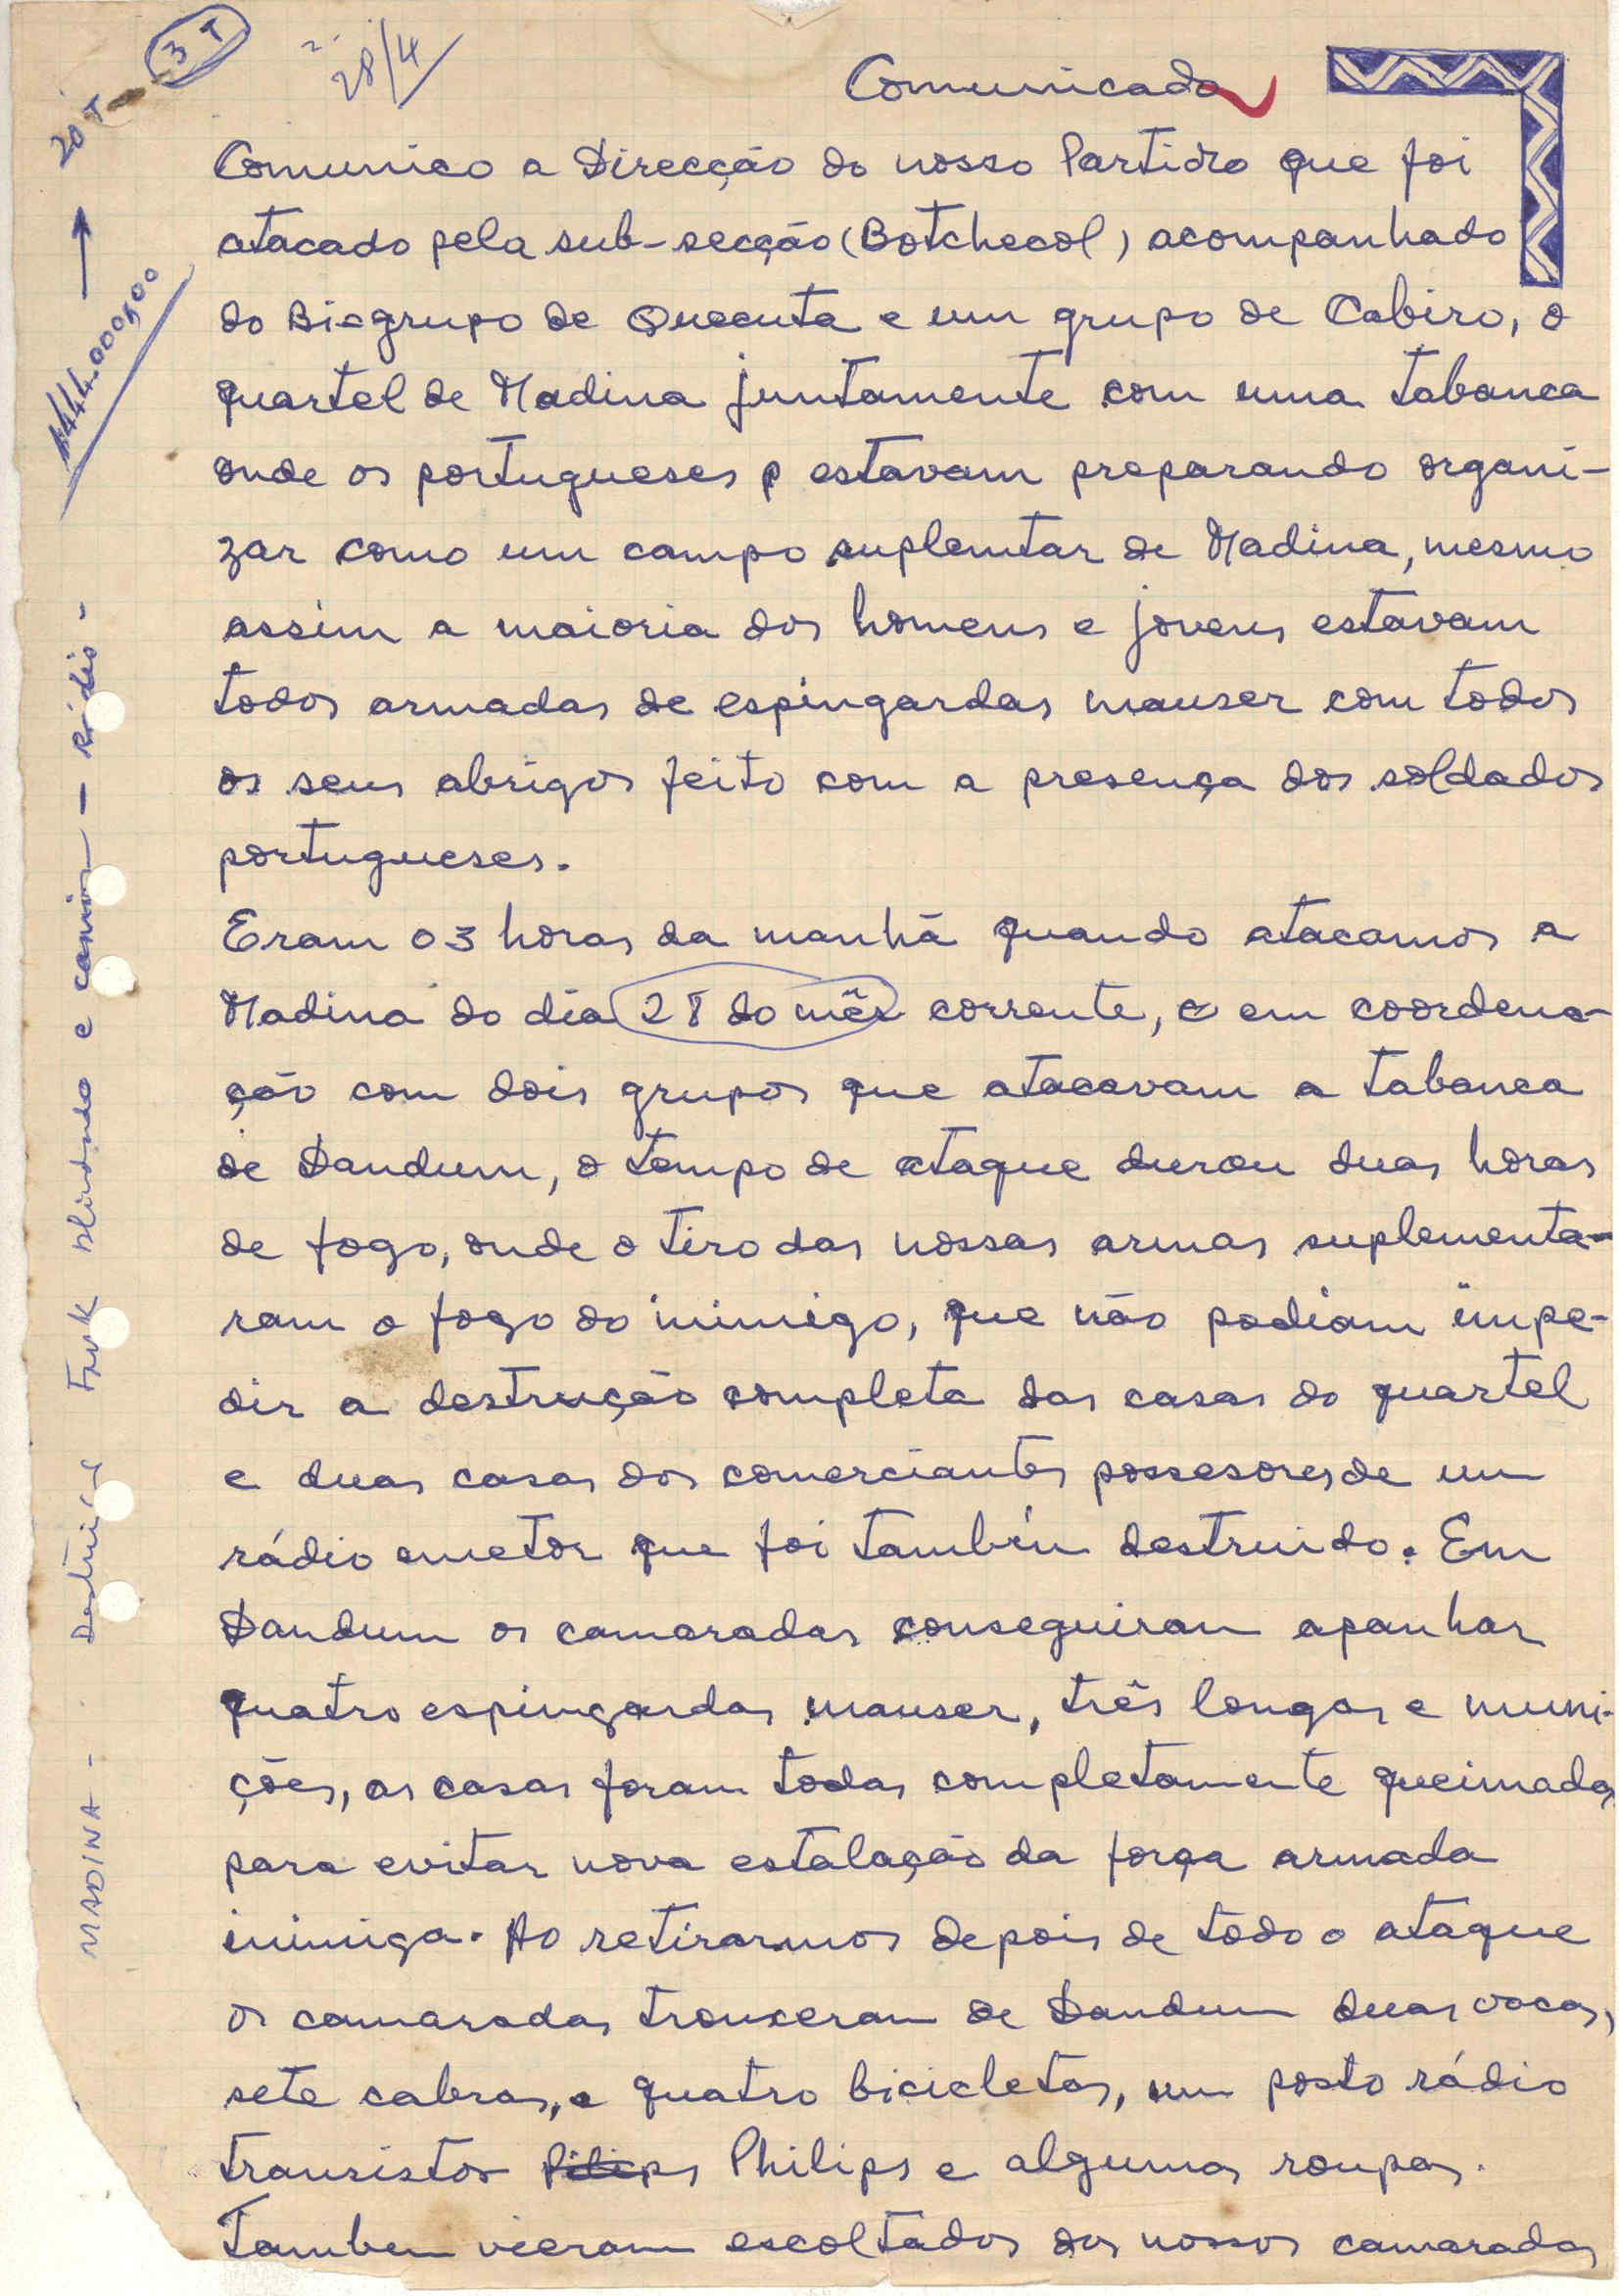 3 T
28/4
20 T
Comunicado
Comunico a Direcção do nosso Partido que foi
atacado pela sub-secção (Botchecol) acompanhado
do Bi-grupo de Quecuta e um grupo de Cabiro, o
quartel de Madina juntamente com uma tabanca
onde os portugueses p estavam preparando organi-
zar como um campo suplemtar de Madina, mesmo
assim a maioria dos homens e jovens estavam
todos armadas de espingardas mauser com todos
os seus abrigos feito com a presença dos soldados
portugueses.
Eram 03 horas da manhã quando atacamos a
Madina do dia 28 do mês corrente, e em coordena-
ção com dois grupos que atacavam a tabanca
de Dandum, o tempo de ataque durou duas horas
de fogo, onde o tiro das nossas armas suplementa-
ram o fogo do inimigo, que não podiam impe-
dir a destrução completa das casas do quartel
e duas casas dos comerciantes possesores de um
rádio emetor que foi também destruido. Em
Dandum os camaradas conseguiram apanhar
quatro espingardas mauser, três longas e muni-
ções, as casas foram todas completamente queimadas
para evitar nova estalação da força armada
inimiga. Ao retirarmos depois de todo o ataque
os camaradas trouxeram de Dandum duas vacas,
sete cabras, e quatro bicicletas, um posto rádio
transistor Philips e algumas roupas.
Tambem vieram escoltados dos nossos camaradas
MADINA - Destruição blindado e camion - rádio -